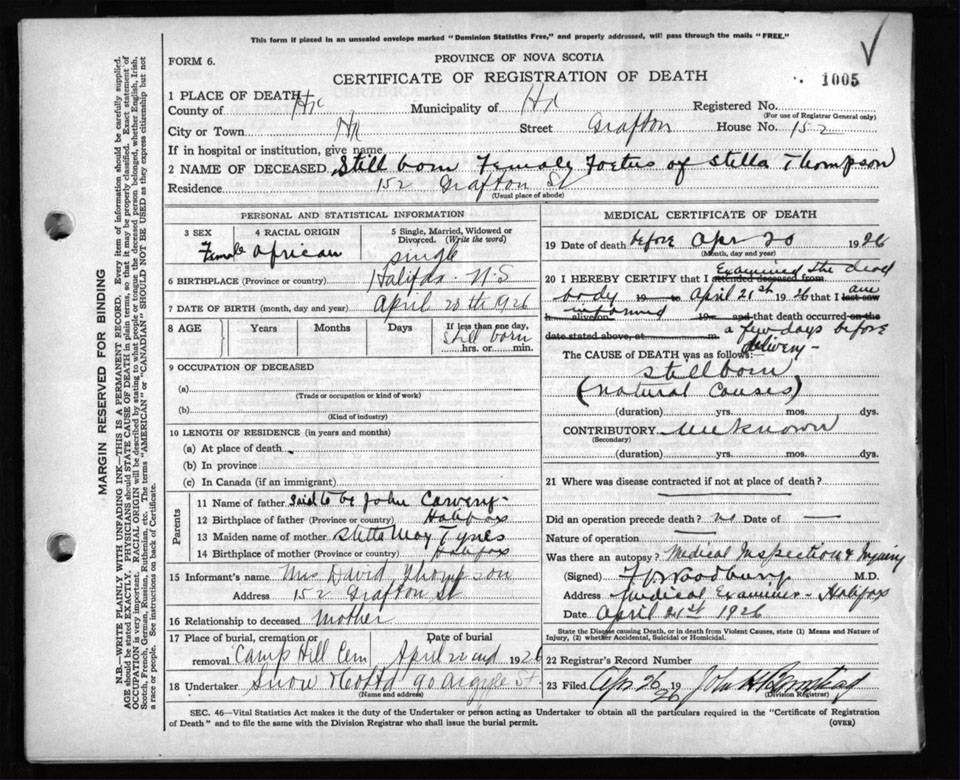 This form if placed in an unsealed envelope marked "Dominion Statistics Free," and properly addressed, will pass through the mails "FREE."
FORM 6.
PROVINCE OF NOVA SCOTIA
CERTIFICATE OF REGISTRATION OF DEATH
1005
1 PLACE OF DEATH
County of Hx Municipality of Hx Registered No.
(For use of Registrar General only)
City or Town Hx Street Grafton House No. 152
If in hospital or institution, give name
2 NAME OF DECEASED Still born Female Foetus of Stella Thompson
Residence 152 Grafton St
(Usual place of abode)
PERSONAL AND STATISTICAL INFORMATION
3 SEX Female
4 RACIAL ORIGIN African
5 Single, Married, Widowed or Divorced. (Write the word) single
6 BIRTHPLACE (Province or country) Halifax - N.S
7 DATE OF BIRTH (month, day and year) April 20th 1926
8 AGE Years Months Days If less than one day, Still born hrs. or min.
9 OCCUPATION OF DECEASED
(a)
(Trade or occupation or kind of work)
(b)
(Kind of industry)
10 LENGTH OF RESIDENCE (in years and months)
(a) At place of death
(b) In province
(c) In Canada (if an immigrant)
Parents
11 Name of father Said to be John Carvery
12 Birthplace of father (Province or country) Halifax
13 Maiden name of mother Stella May Tynes
14 Birthplace of mother (Province or country) Halifax
15 Informant's name Mrs David Thompson
Address 152 Grafton St
16 Relationship to deceased mother
17 Place of burial, cremation or removal Camp Hill Cem
Date of burial April 22nd 1926
18 Undertaker Snow & Co Ltd 90 Argyle St
(Name and address)
MEDICAL CERTIFICATE OF DEATH
19 Date of death before Apr 20 1926
(Month, day and year)
20 I HEREBY CERTIFY that I attended deceased from Examined the dead
body 19 to April 21st 1926 that I last saw am
h alive on informed 19 and that death occurred on the
date stated above, at m. a few days before
delivery -
The CAUSE OF DEATH was as follows:
stillborn
(natural causes)
(duration) yrs. mos. dys.
CONTRIBUTORY unknown
(Secondary)
(duration) yrs. mos. dys.
21 Where was disease contracted if not at place of death?
Did an operation precede death? no Date of
Nature of operation
Was there an autopsy? Medical Inspection & Inquiry
(Signed) F V Woodbury M.D.
Address Medical Examiner - Halifax
Date April 21st 1926
State the Disease causing Death, or in death from Violent Causes, state (1) Means and Nature of
Injury, (2) whether Accidental, Suicidal or Homicidal.
22 Registrar's Record Number
23 Filed Apr 26 1926 John H
(Division Registrar)
SEC. 46—Vital Statistics Act makes it the duty of the Undertaker or person acting as Undertaker to obtain all the particulars required in the "Certificate of Registration
of Death" and to file the same with the Division Registrar who shall issue the burial permit.
(OVER)
MARGIN RESERVED FOR BINDING
N.B.—WRITE PLAINLY WITH UNFADING INK—THIS IS A PERMANENT RECORD. Every item of information should be carefully supplied.
AGE should be stated EXACTLY. PHYSICIANS should STATE CAUSE OF DEATH in plain terms, so that it may be properly classified. Exact statement of
OCCUPATION is very important. RACIAL ORIGIN will be described by stating to what people or tongue the deceased person belonged, whether English, Irish,
Scotch, French, German, Russian, Ruthenian, etc. The terms "AMERICAN" or "CANADIAN" SHOULD NOT BE USED as they express citizenship but not
a race or people. See instructions on back of Certificate.